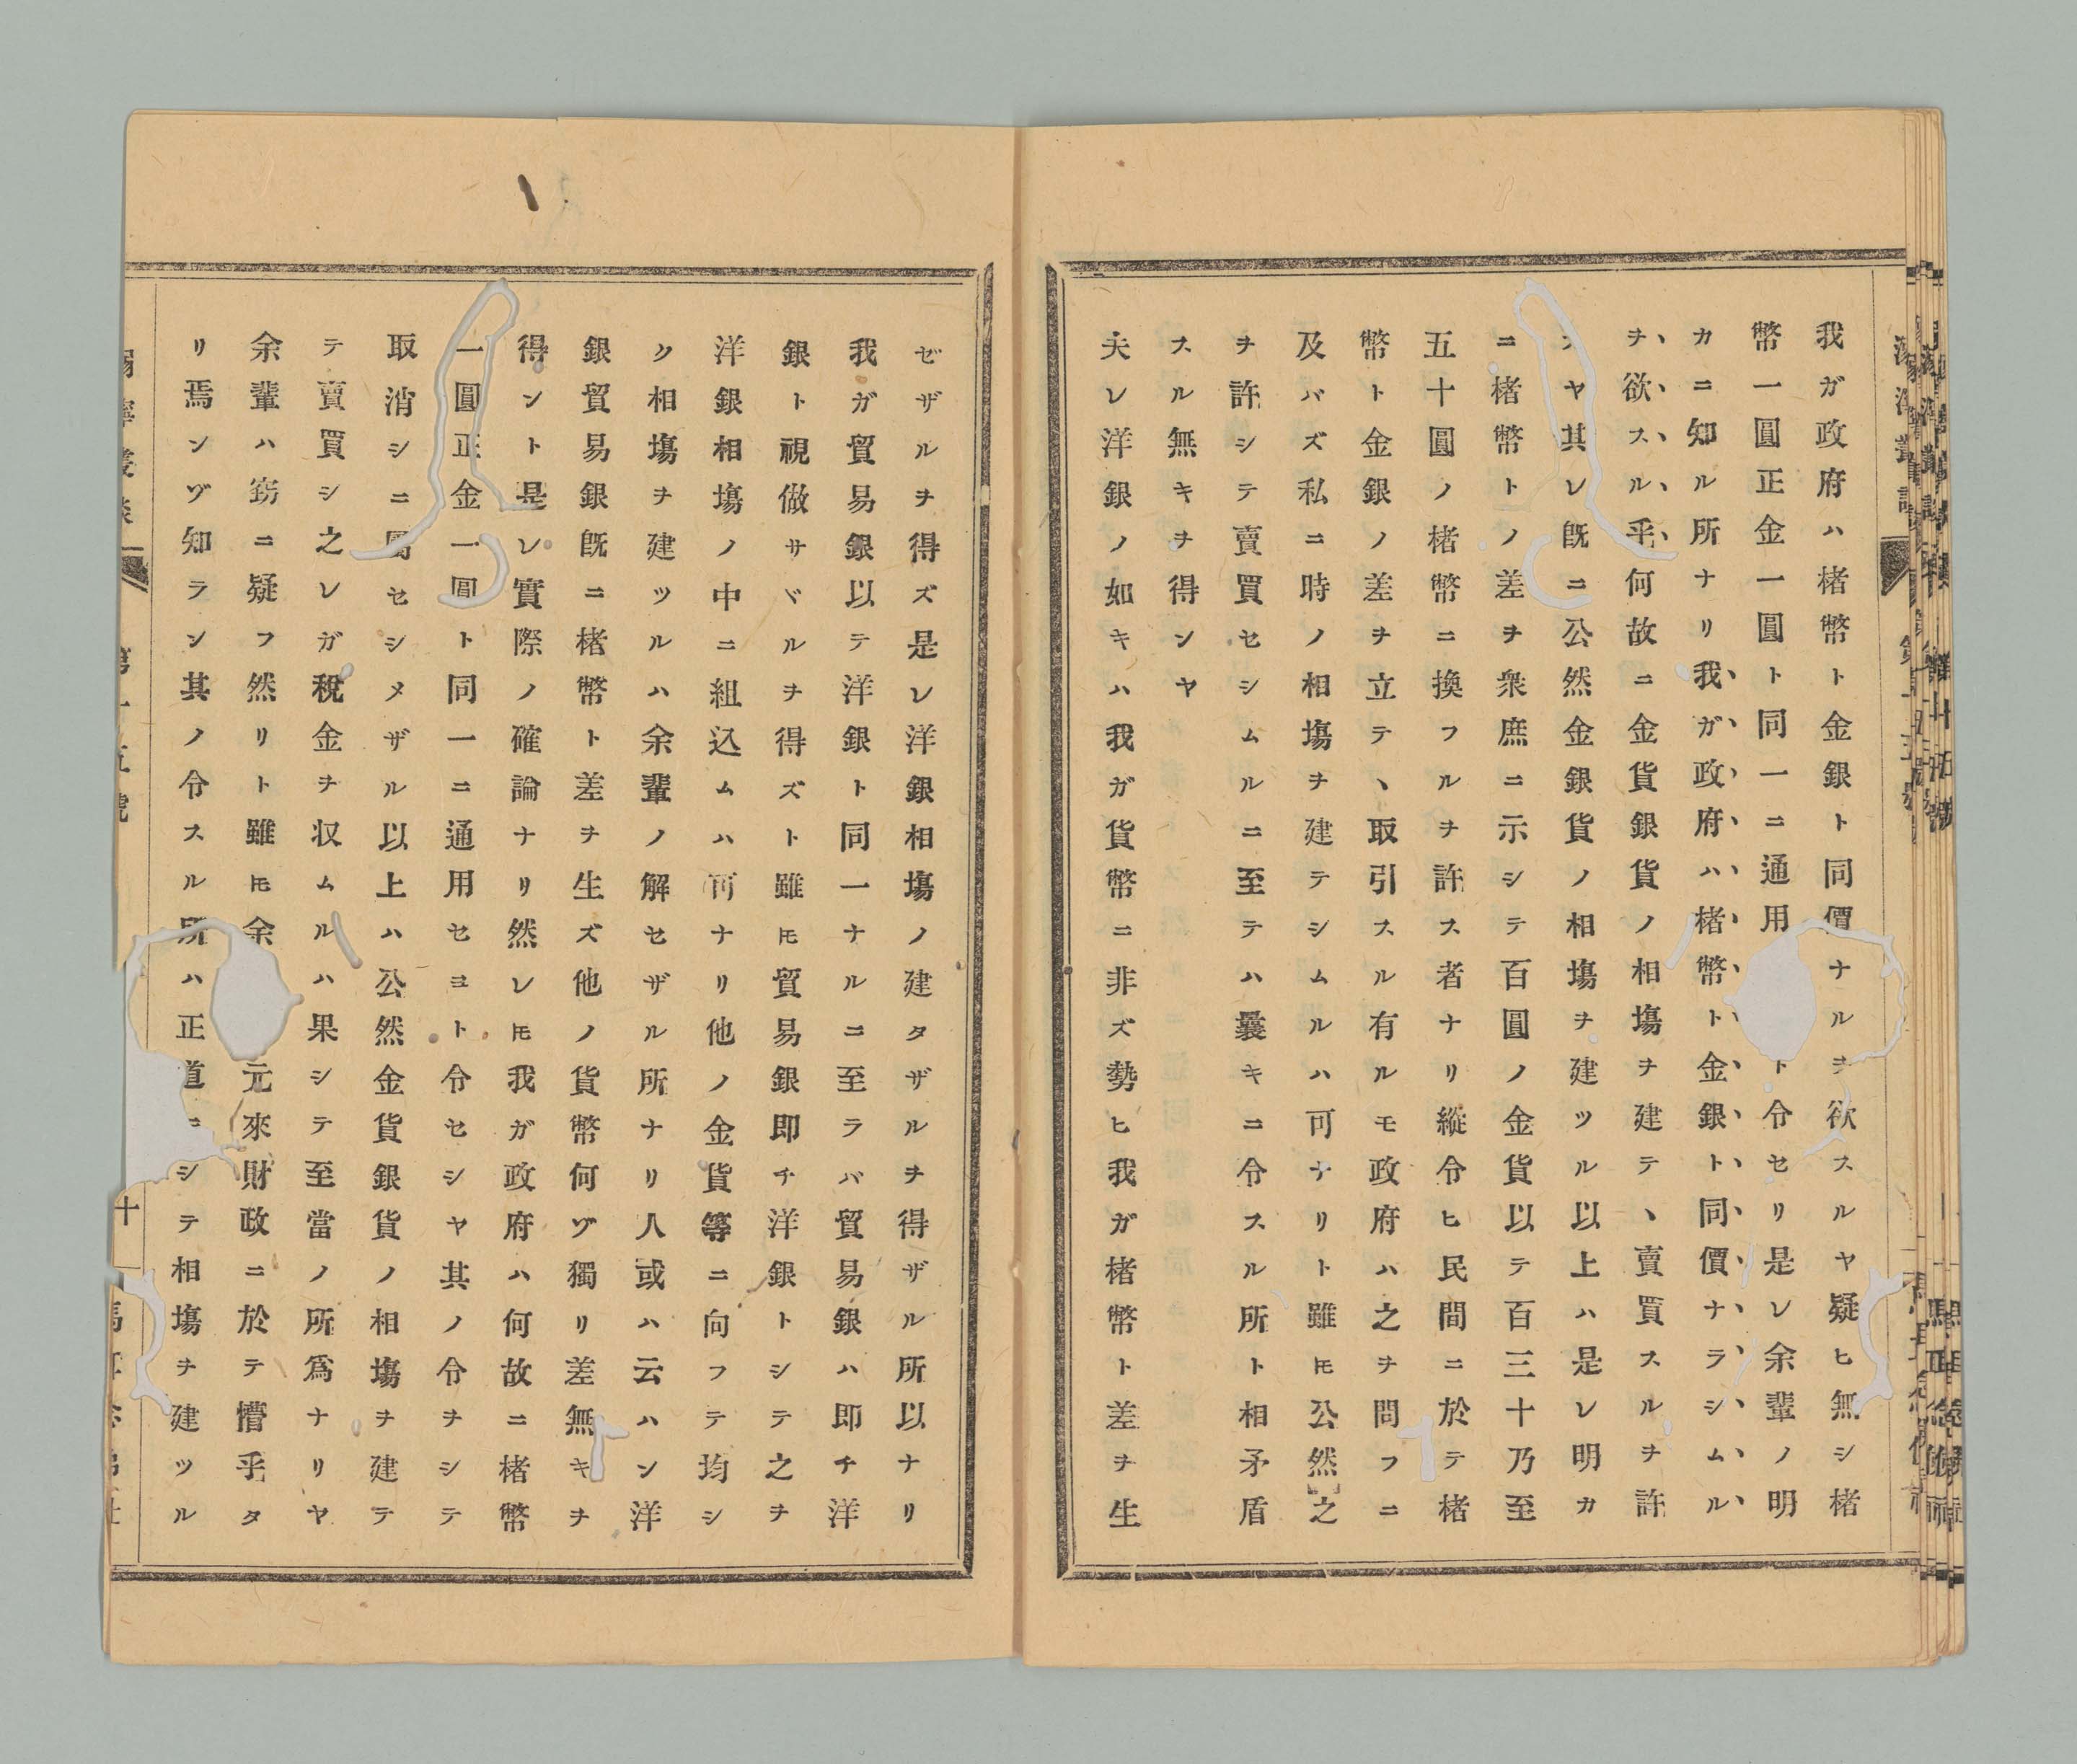 我ガ政府ハ楮幣ト金銀ト同價ナルヲ欲スルヤ疑ヒ無シ楮
幣一圓正金一圓ト同一ニ通用ト令セリ是レ余輩ノ明
カニ知ル所ナリ我ガ政府ハ楮幣ト金銀ト同價ナラシムル
ヲ欲スル乎何故ニ金貨銀貨ノ相塲ヲ建テヽ賣買スルヲ許
スヤ其レ既ニ公然金銀貨ノ相塲ヲ建ツル以上ハ是レ明カ
ニ楮幣トノ差ヲ衆庶ニ示シテ百圓ノ金貨以テ百三十乃至
五十圓ノ楮幣ニ換フルヲ許ス者ナリ縱令ヒ民間ニ於テ楮
幣ト金銀ノ差ヲ立テヽ取引スル有ルモ政府ハ之ヲ問フニ
及バズ私ニ時ノ相塲ヲ建テシムルハ可ナリト雖モ公然之
ヲ許シテ賣買セシムルニ至テハ曩キニ令スル所ト相矛盾
スル無キヲ得ンヤ
夫レ洋銀ノ如キハ我ガ貨幣ニ非ズ勢ヒ我ガ楮幣ト差ヲ生
ゼザルヲ得ズ是レ洋銀相塲ノ建タザルヲ得ザル所以ナリ
我ガ貿易銀以テ洋銀ト同一ナルニ至ラバ貿易銀ハ即チ洋
銀ト視做サヾルヲ得ズト雖モ貿易銀即チ洋銀トシテ之ヲ
洋銀相塲ノ中ニ組込ムハ可ナリ他ノ金貨等ニ向フテ均シ
ク相塲ヲ建ツルハ余輩ノ解セザル所ナリ人或ハ云ハン洋
銀貿易銀既ニ楮幣ト差ヲ生ズ他ノ貨幣何ゾ獨リ差無キヲ
得ント是レ實際ノ確論ナリ然レモ我ガ政府ハ何故ニ楮幣
一圓正金一圓ト同一ニ通用セヨト令セシヤ其ノ令ヲシテ
取消シニ屬セシメザル以上ハ公然金貨銀貨ノ相塲ヲ建テ
テ賣買シ之レガ税金ヲ収ムルハ果シテ至當ノ所爲ナリヤ
余輩ハ窃ニ疑フ然リト雖モ余元來財政ニ於テ懵乎タ
リ焉ンゾ知ラン其ノ令スル所ハ正道ニシテ相塲ヲ建ツル
第十五號
十